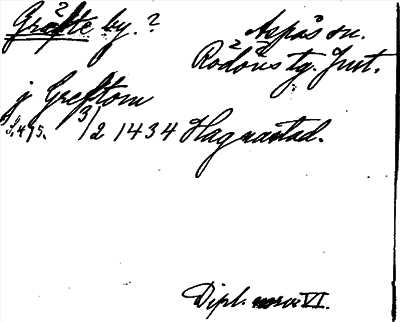 Gräfte by.? Aspås sn.
Rödöns tg. Jmt.
j Greftom
S. 475. 3/2 1434 Hagnastad.
Dipl. norv. VI.